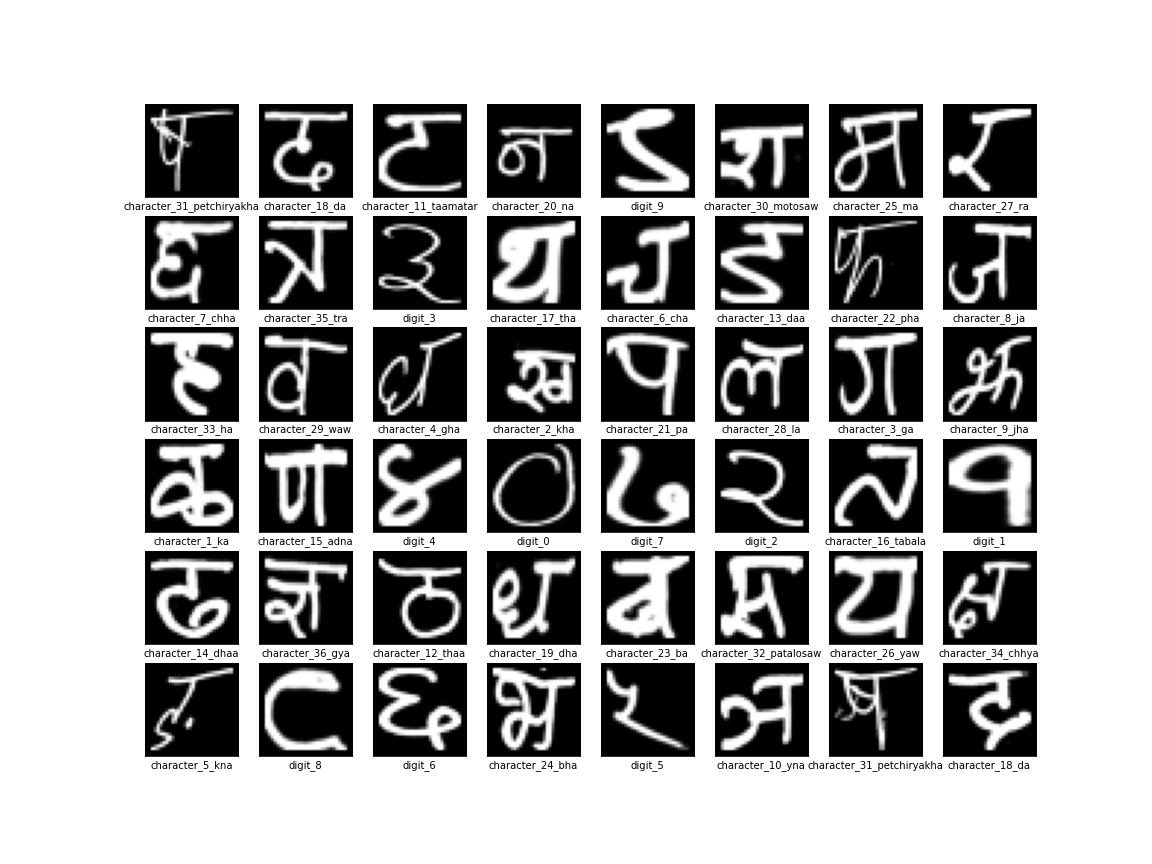 ष द ट न ९ श म र
character_31_petchiryakha character_18_da character_11_taamatar character_20_na digit_9 character_30_motosaw character_25_ma character_27_ra
छ त्र ३ थ च ड फ ज
character_7_chha character_35_tra digit_3 character_17_tha character_6_cha character_13_daa character_22_pha character_8_ja
ह व घ ख प ल ग झ
character_33_ha character_29_waw character_4_gha character_2_kha character_21_pa character_28_la character_3_ga character_9_jha
क ण ४ ० ७ २ त १
character_1_ka character_15_adna digit_4 digit_0 digit_7 digit_2 character_16_tabala digit_1
ढ ज्ञ ठ ध ब स य क्ष
character_14_dhaa character_36_gya character_12_thaa character_19_dha character_23_ba character_32_patalosaw character_26_yaw character_34_chhya
ङ ८ ६ भ ५ ञ ष द
character_5_kna digit_8 digit_6 character_24_bha digit_5 character_10_yna character_31_petchiryakha character_18_da